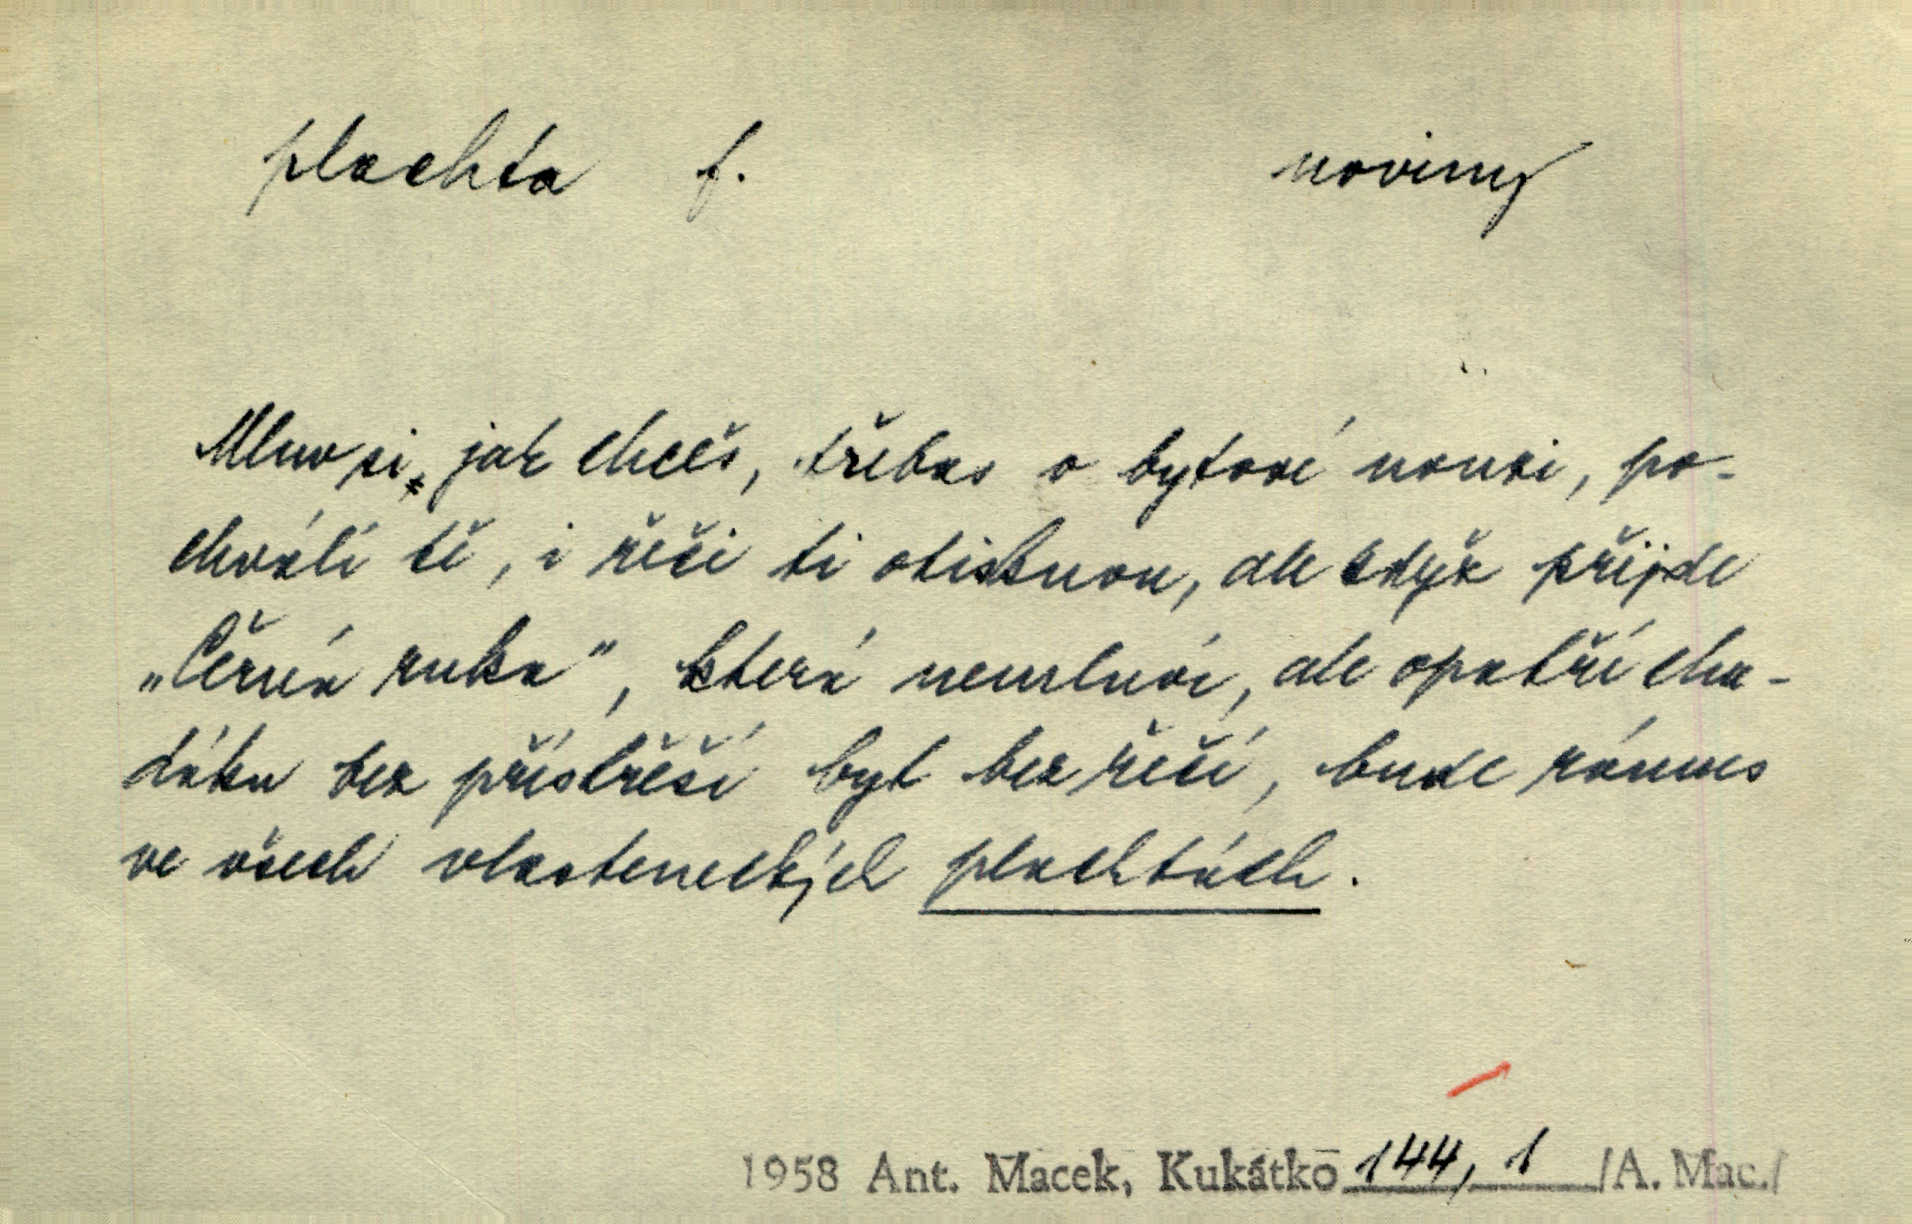 plachta f. noviny
Mluv si, jak chceš, třebas o bytové nouzi, po-
chválí tě, i řeči ti otisknou, ale když přijde
„Černá ruka", která nemluví, ale opatří chu-
dáku bez přístřeší byt bez řečí, bude rámus
ve všech vlasteneckých plachtách.
1958 Ant. Macek, Kukátko 144, 1 /A. Mac./